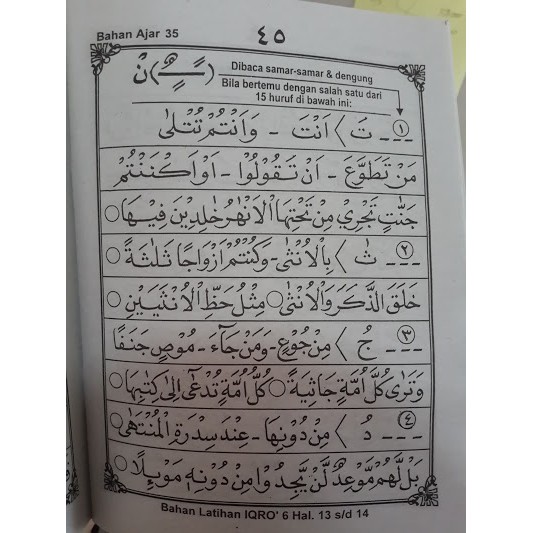 Bahan Ajar 35
٤٥
نْ ( ـًــٍــٌ )
Dibaca samar-samar & dengung
Bila bertemu dengan salah satu dari
15 huruf di bawah ini:
١ --- تَ > اَنْتَ - وَاَنْتُمْ تُتْلٰى
مَنْ تَطَوَّعَ - اَنْ تَقُوْلُوْا - اَوْ اَكْنَنْتُمْ
جَنّٰتٍ تَجْرِيْ مِنْ تَحْتِهَا الْاَنْهٰرُ خٰلِدِيْنَ فِيْهَا ○
٢ --- ث > بِالْاُنْثٰى - وَكُنْتُمْ اَزْوَاجًا ثَلٰثَةً
خَلَقَ الذَّكَرَ وَالْاُنْثٰى ○ مِثْلُ حَظِّ الْاُنْثَيَيْنِ ○
٣ --- جُ > مِنْ جُوْعٍ - وَمَنْ جَآءَ - مُوْصٍ جَنَفًا
وَتَرٰى كُلَّ اُمَّةٍ جَاثِيَةً ○ كُلُّ اُمَّةٍ تُدْعٰٓى اِلٰى كِتٰبِهَا ○
٤ --- دُ > مِنْ دُوْنِهَا - عِنْدَ سِدْرَةِ الْمُنْتَهٰى
بَلْ لَّهُمْ مَّوْعِدٌ لَّنْ يَّجِدُوْا مِنْ دُوْنِهٖ مَوْىِٕلًا ○
Bahan Latihan IQRO' 6 Hal. 13 s/d 14